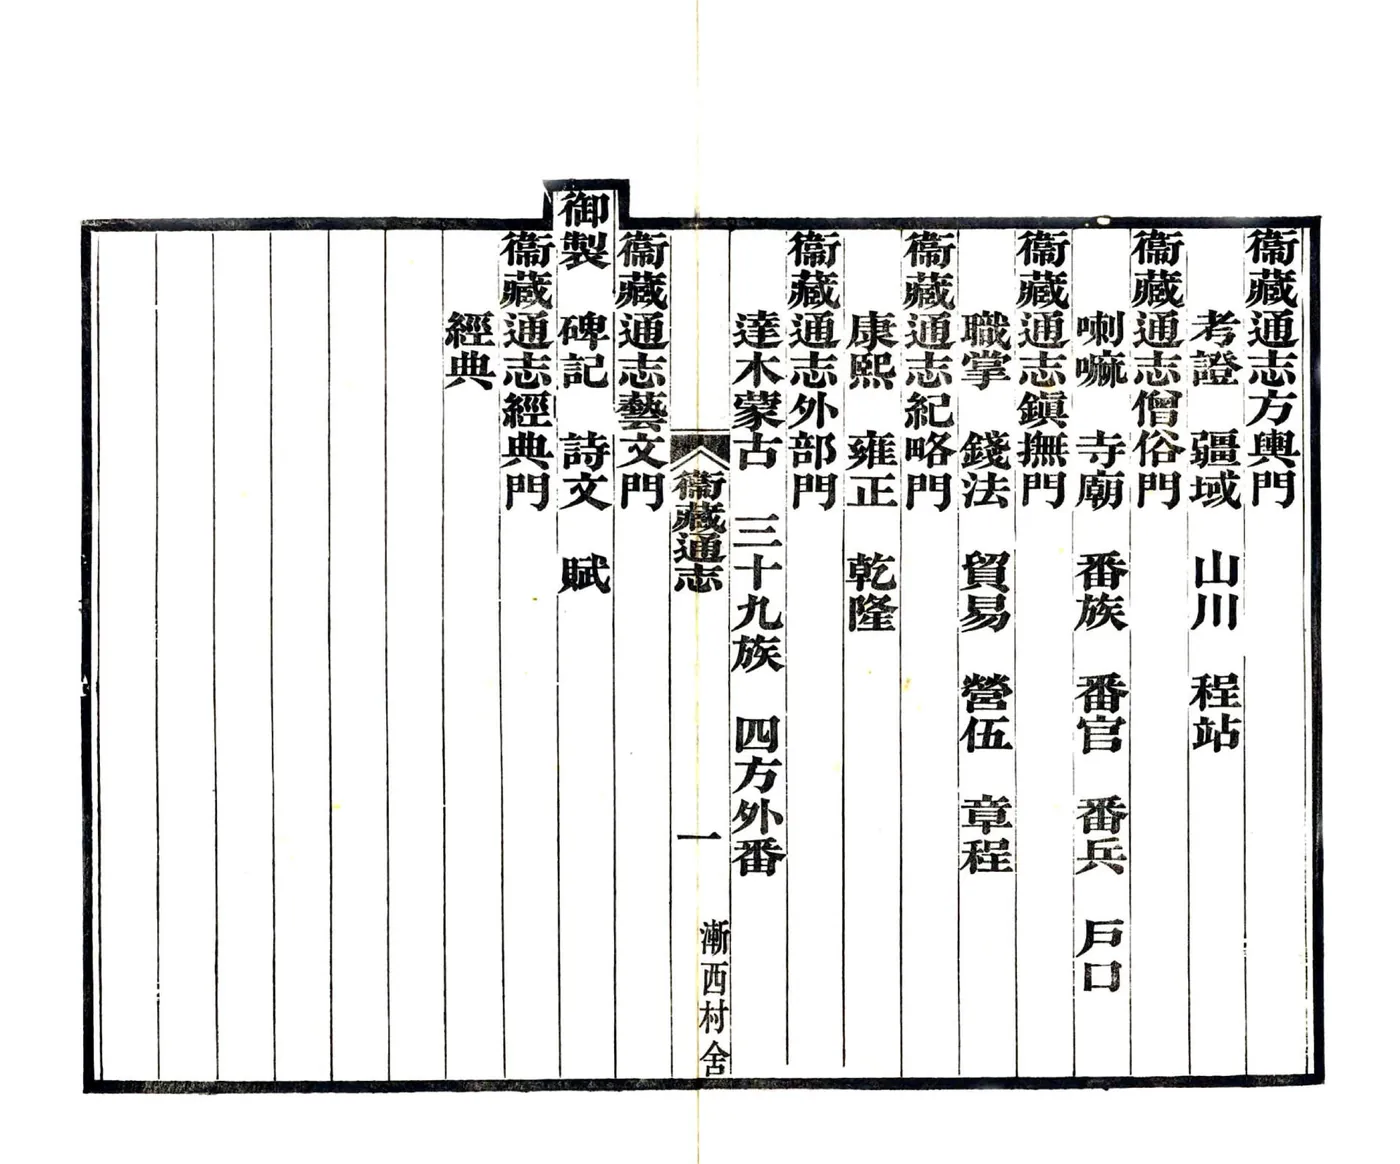 衞藏通志方輿門
考證　疆域　山川　程站
衞藏通志僧俗門
喇嘛　寺廟　番族　番官　番兵　戶口
衞藏通志鎭撫門
職掌　錢法　貿易　營伍　章程
衞藏通志紀略門
康熙　雍正　乾隆
衞藏通志外部門
達木蒙古　三十九族　四方外番
衞藏通志　一　漸西村舍
衞藏通志藝文門
御製　碑記　詩文　賦
衞藏通志經典門
經典